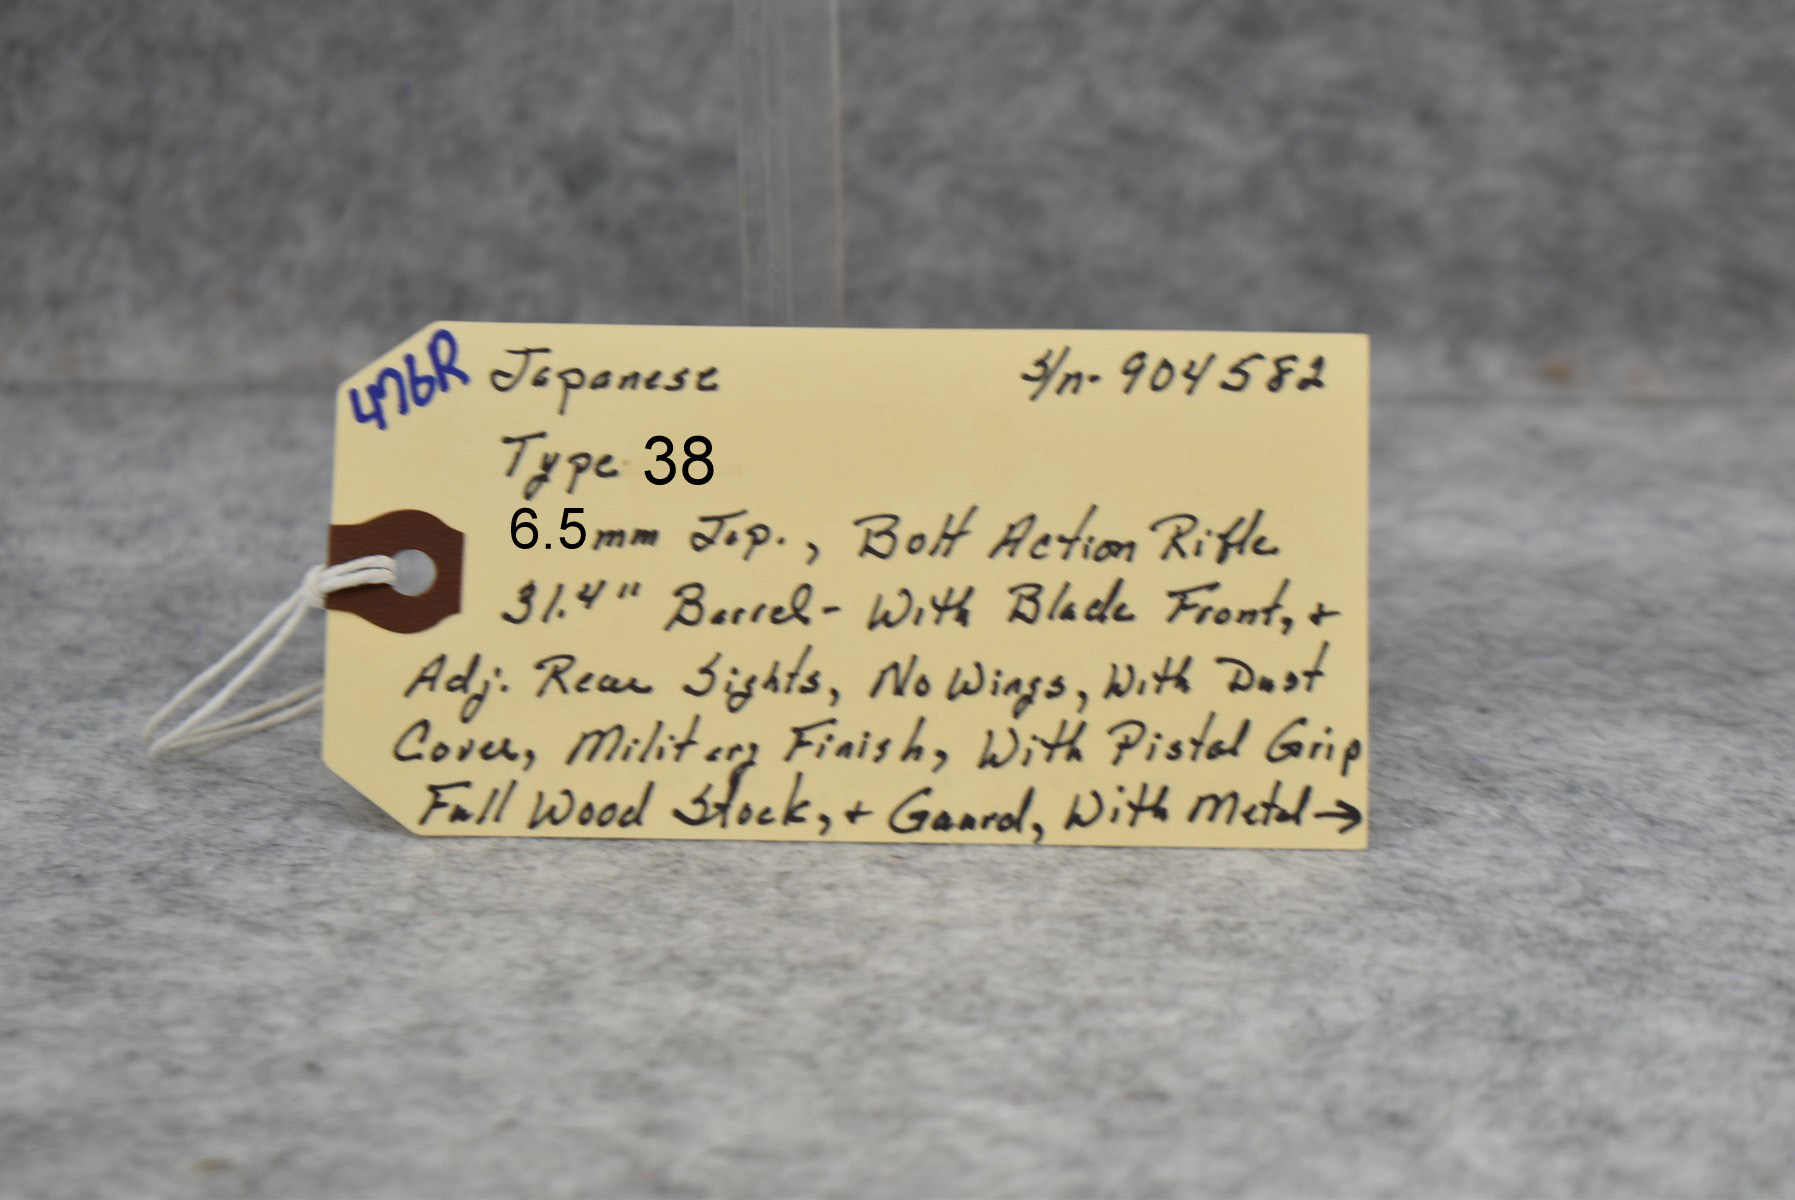 476R
Japanese S/n. 904582
Type 38
6.5mm Jap., Bolt Action Rifle
31.4" Barrel - With Blade Front, +
Adj. Rear Sights, No Wings, With Dust
Cover, Military Finish, With Pistol Grip
Full Wood Stock, + Gaurd, With Metal →